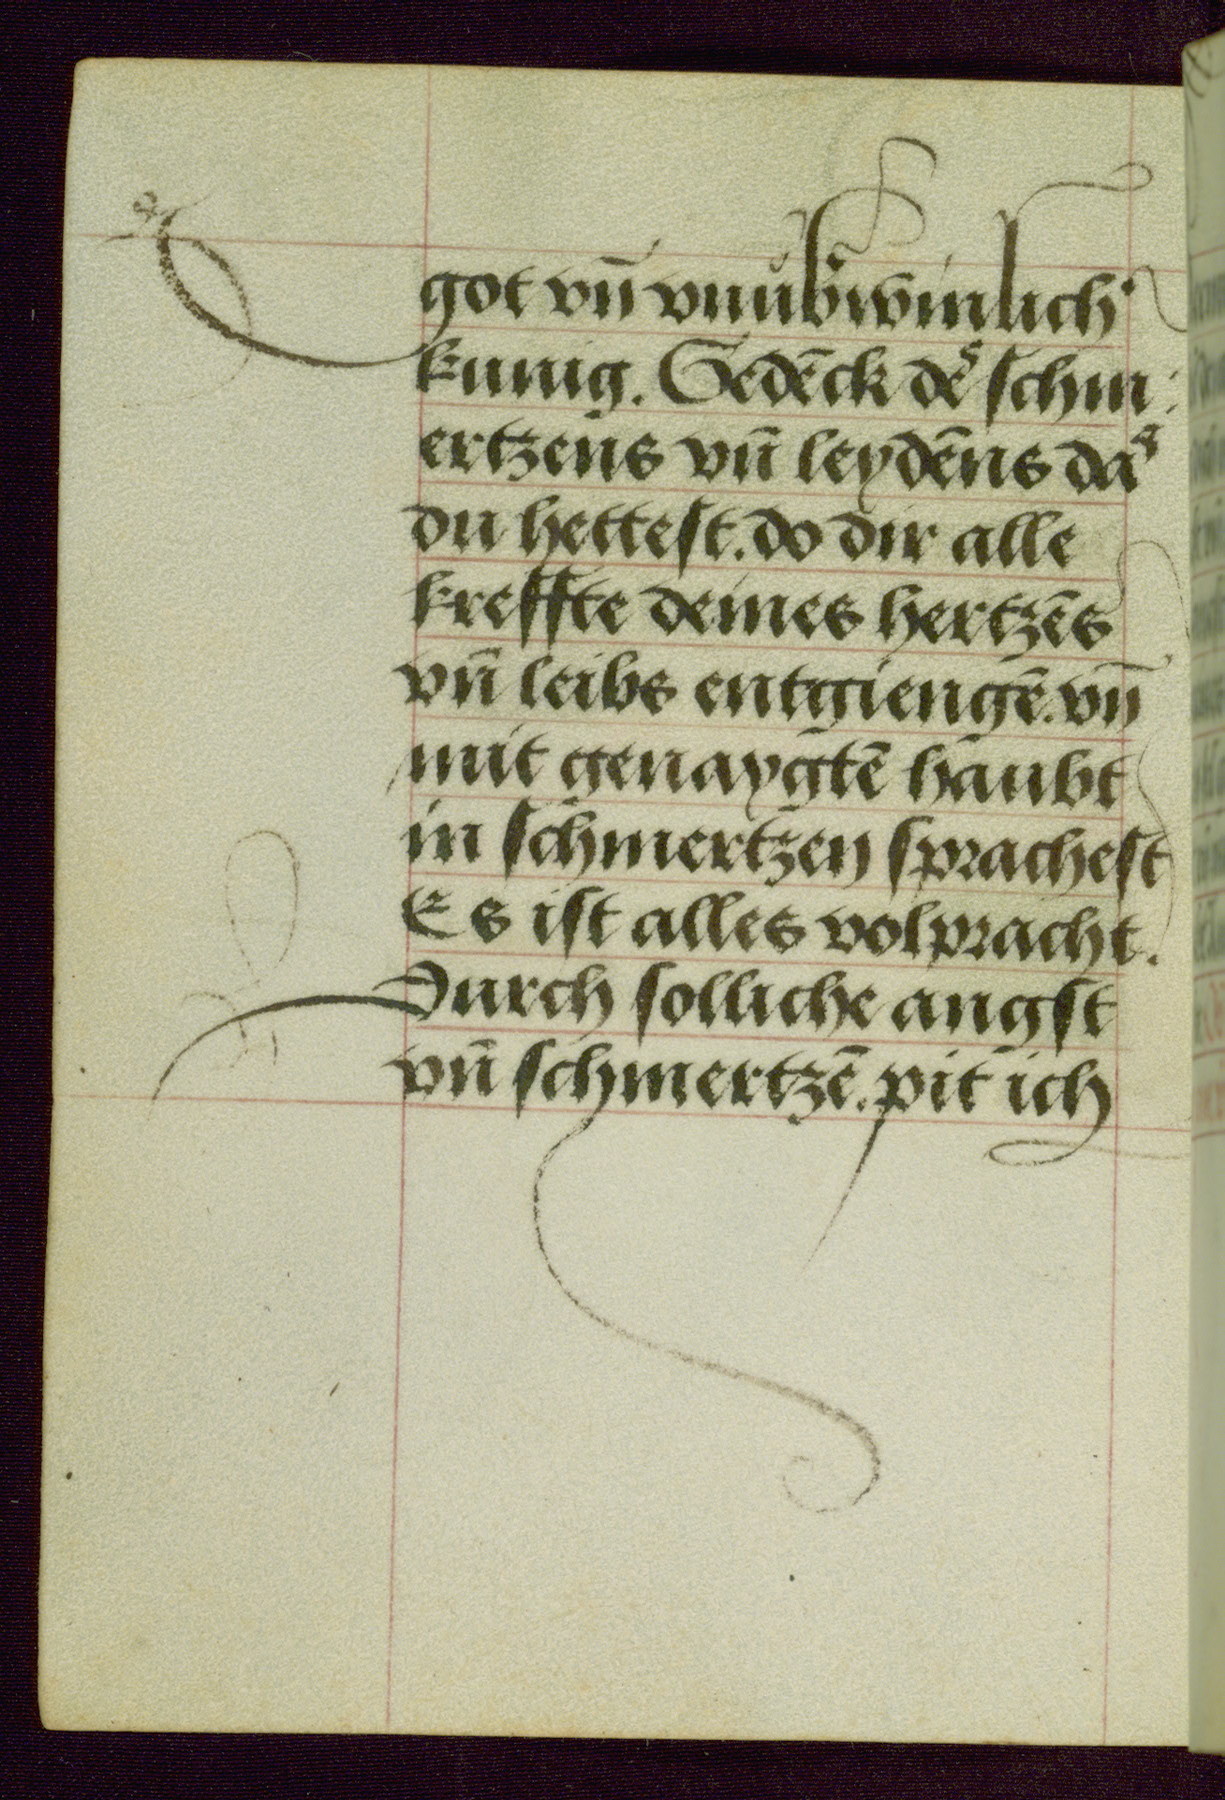 got vn̄ vnůb̾winlich
kunig. Gedēck deˢ schm:
ertzens vn̄ leydēns daˢ
du hettest. do dir alle
kreffte deines hertzēs
vn̄ leibs entgiengē. vn̄
mit genaygtē haubt
in schmertzen sprachest
Es ist alles volpracht.
Durch solliche angst
vn̄ schmertzē. pit ich